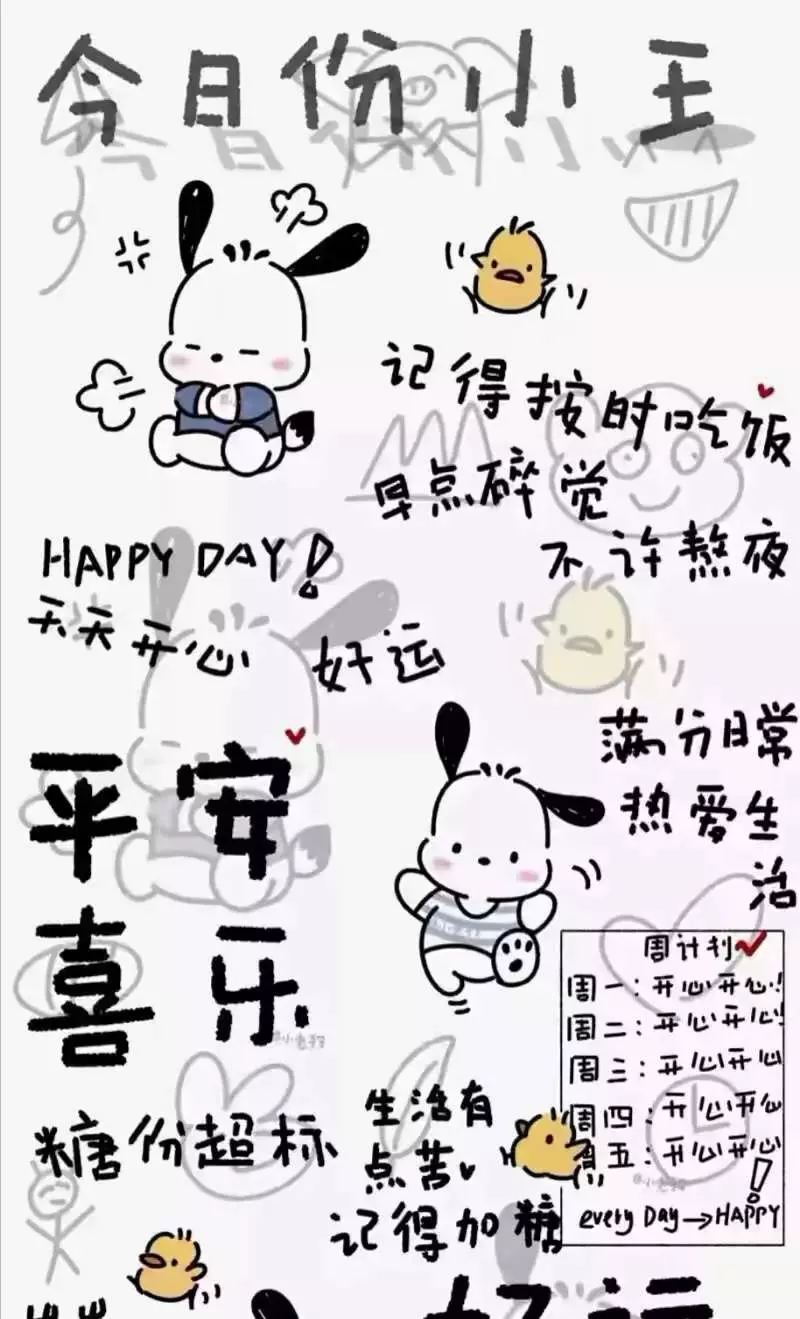 今日份小王
记得按时吃饭
早点碎觉
不许熬夜
HAPPY DAY!
天天开心 好运
平安
喜乐
满分日常
热爱生
活
周计划
周一:开心开心!
周二:开心开心!
周三:开心开心
周四:开心开心
周五:开心开心!
every DAY→HAPPY
糖份超标
生活有
点苦
记得加糖
好运